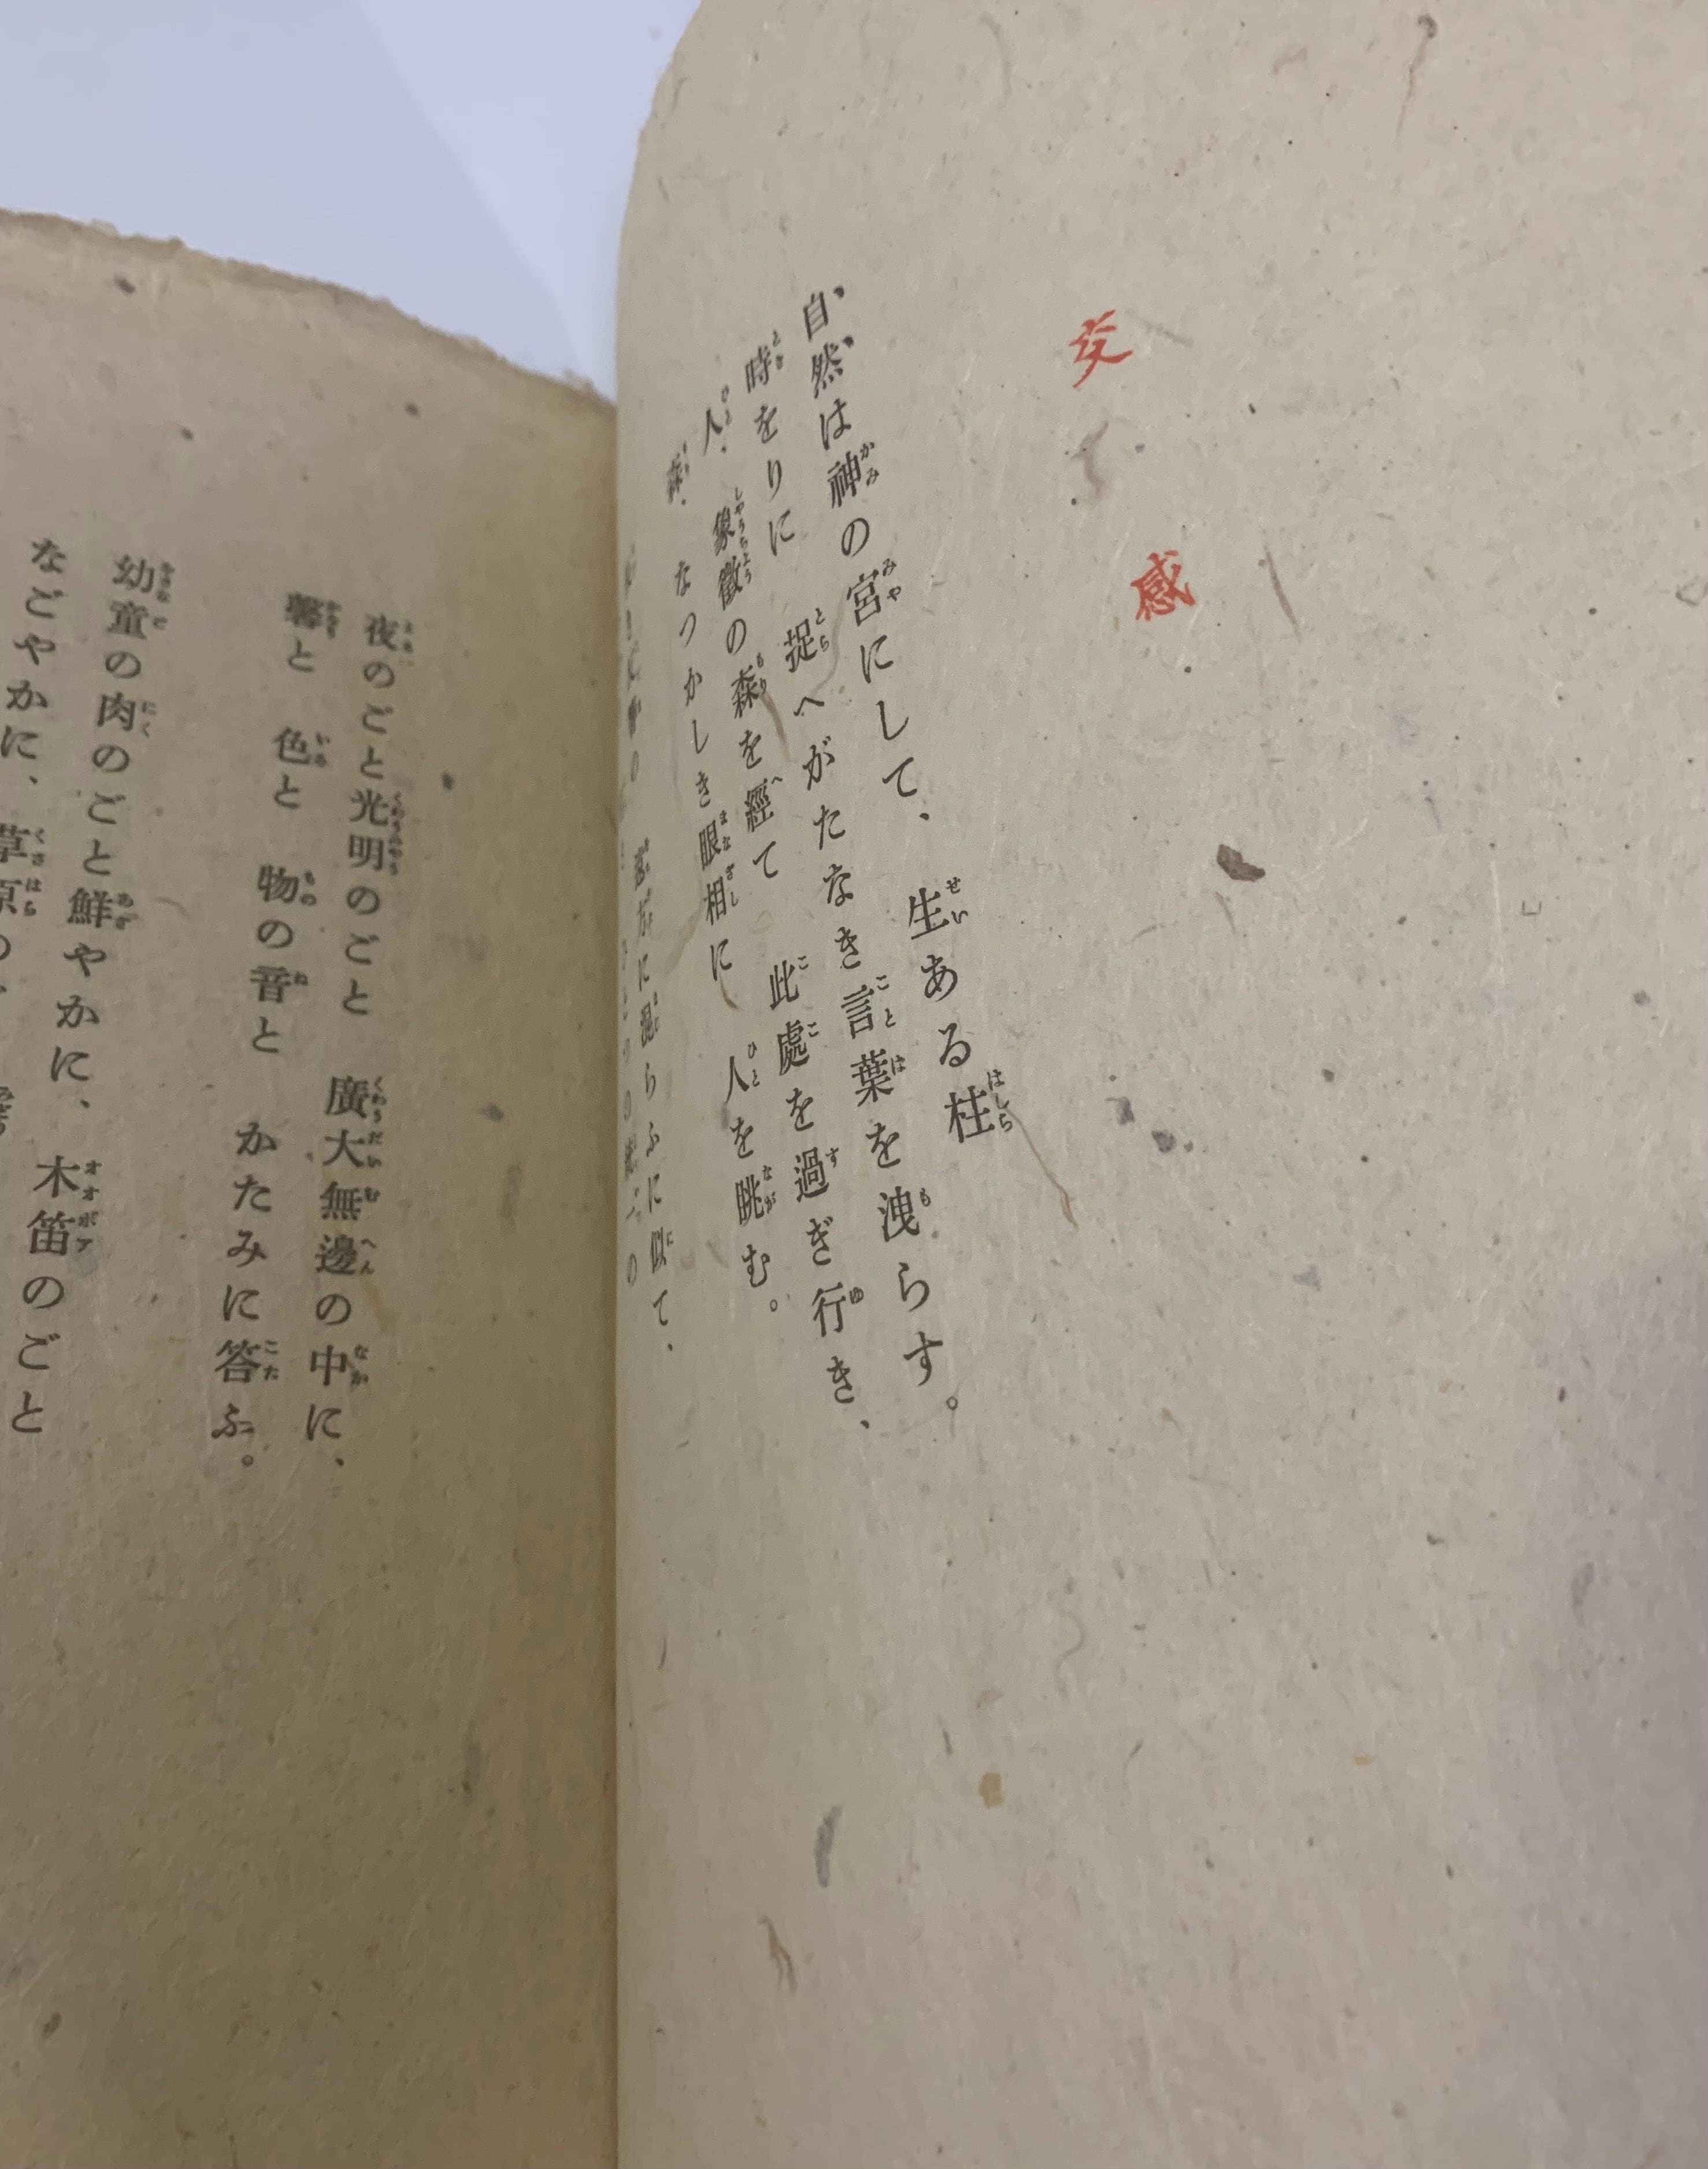 交感
自然は神の宮にして、 生ある柱
時をりに 捉へがたなき言葉を洩らす。
人、 象徴の森を經て 此處を過ぎ行き、
森、 なつかしき眼相に 人を眺む。
に混らふに似て、
夜のごと光明のごと 廣大無邊の中に、
馨と 色と 物の音と かたみに答ふ。
幼童の肉のごと鮮やかに、 木笛のごと
なごやかに、 草原の